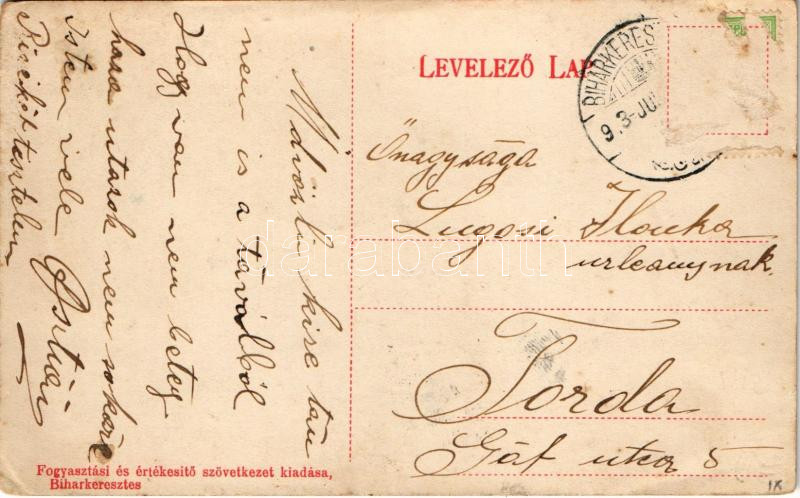 LEVELEZŐ LAP
BIHARKERESZ
9 3-JUL
Őnagysága
Lugosi Ilonka
urleanynak.
Torda
Gát utca 5
Üdvözli kissé tán
nem is a távolból
Hogy van nem beteg
hasa utasok nem sokára
Isten vele
tisztelem
Fogyasztási és értékesitő szövetkezet kiadása,
Biharkeresztes
IX
darabanth